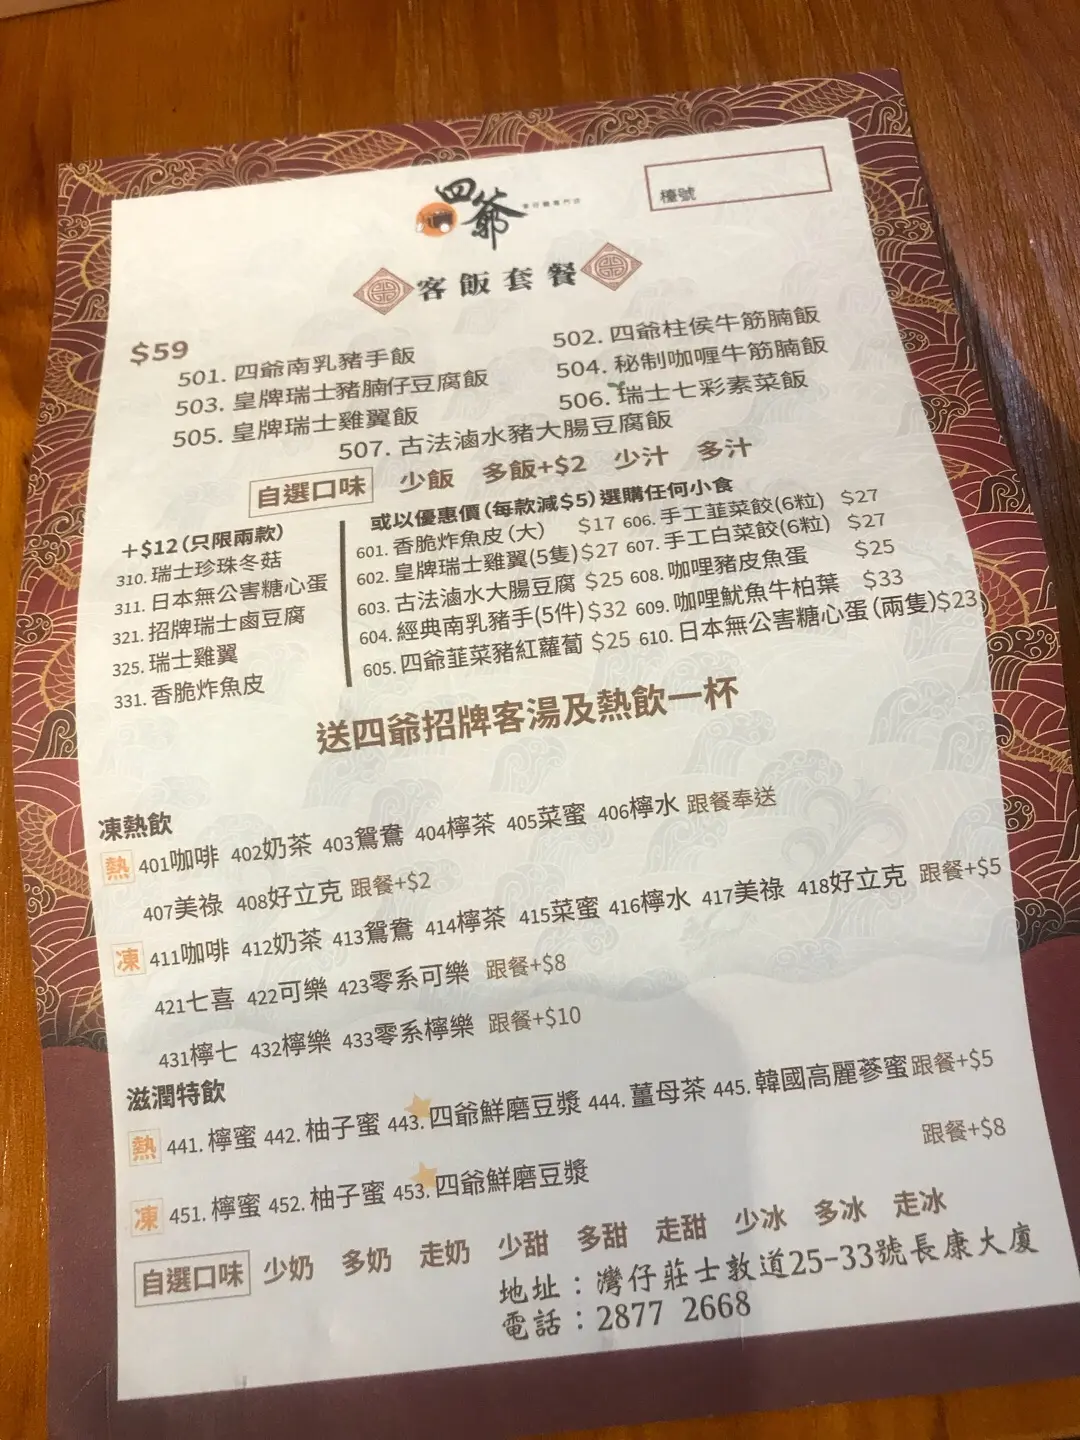 檯號
四爺
客飯套餐
$59
501. 四爺南乳豬手飯
502. 四爺柱侯牛筋腩飯
503. 皇牌瑞士豬腩仔豆腐飯
504. 秘制咖喱牛筋腩飯
505. 皇牌瑞士雞翼飯
506. 瑞士七彩素菜飯
507. 古法滷水豬大腸豆腐飯
自選口味 少飯 多飯+$2 少汁 多汁
+$12 (只限兩款)
310. 瑞士珍珠冬菇
311. 日本無公害糖心蛋
321. 招牌瑞士鹵豆腐
325. 瑞士雞翼
331. 香脆炸魚皮
或以優惠價 (每款減$5) 選購任何小食
601. 香脆炸魚皮 (大) $17 606. 手工韮菜餃(6粒) $27
602. 皇牌瑞士雞翼(5隻) $27 607. 手工白菜餃(6粒) $27
603. 古法滷水大腸豆腐 $25 608. 咖哩豬皮魚蛋 $25
604. 經典南乳豬手(5件) $32 609. 咖哩魷魚牛柏葉 $33
605. 四爺韮菜豬紅蘿蔔 $25 610. 日本無公害糖心蛋 (兩隻) $23
送四爺招牌客湯及熱飲一杯
凍熱飲
熱 401咖啡 402奶茶 403鴛鴦 404檸茶 405菜蜜 406檸水 跟餐奉送
407美祿 408好立克 跟餐+$2
凍 411咖啡 412奶茶 413鴛鴦 414檸茶 415菜蜜 416檸水 417美祿 418好立克 跟餐+$5
421七喜 422可樂 423零系可樂 跟餐+$8
431檸七 432檸樂 433零系檸樂 跟餐+$10
滋潤特飲
熱 441. 檸蜜 442. 柚子蜜 443. 四爺鮮磨豆漿 444. 薑母茶 445. 韓國高麗蔘蜜 跟餐+$5
凍 451. 檸蜜 452. 柚子蜜 453. 四爺鮮磨豆漿 跟餐+$8
自選口味 少奶 多奶 走奶 少甜 多甜 走甜 少冰 多冰 走冰
地址：灣仔莊士敦道25-33號長康大廈
電話：2877 2668